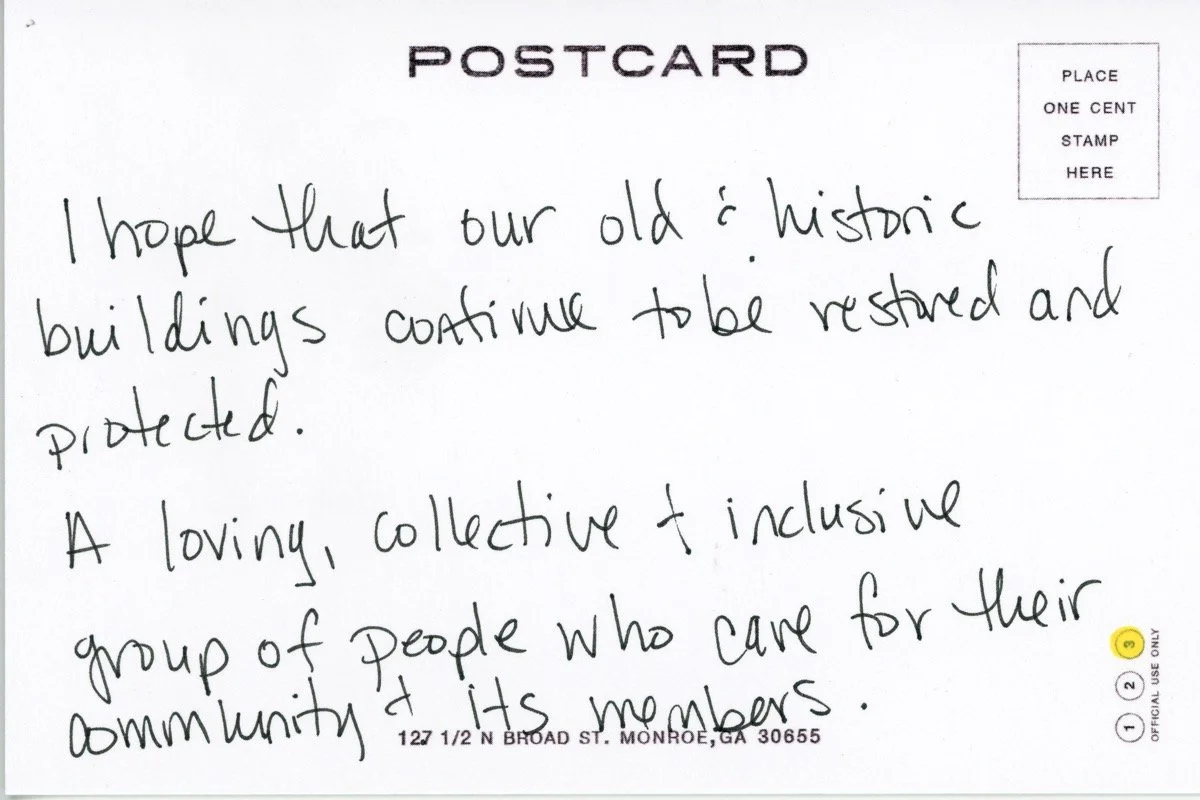 POSTCARD
PLACE
ONE CENT
STAMP
HERE
I hope that our old & historic
buildings continue to be restored and
protected.
A loving, collective + inclusive
group of people who care for their
community + its members.
127 1/2 N BROAD ST. MONROE, GA 30655
1 2 3
OFFICIAL USE ONLY